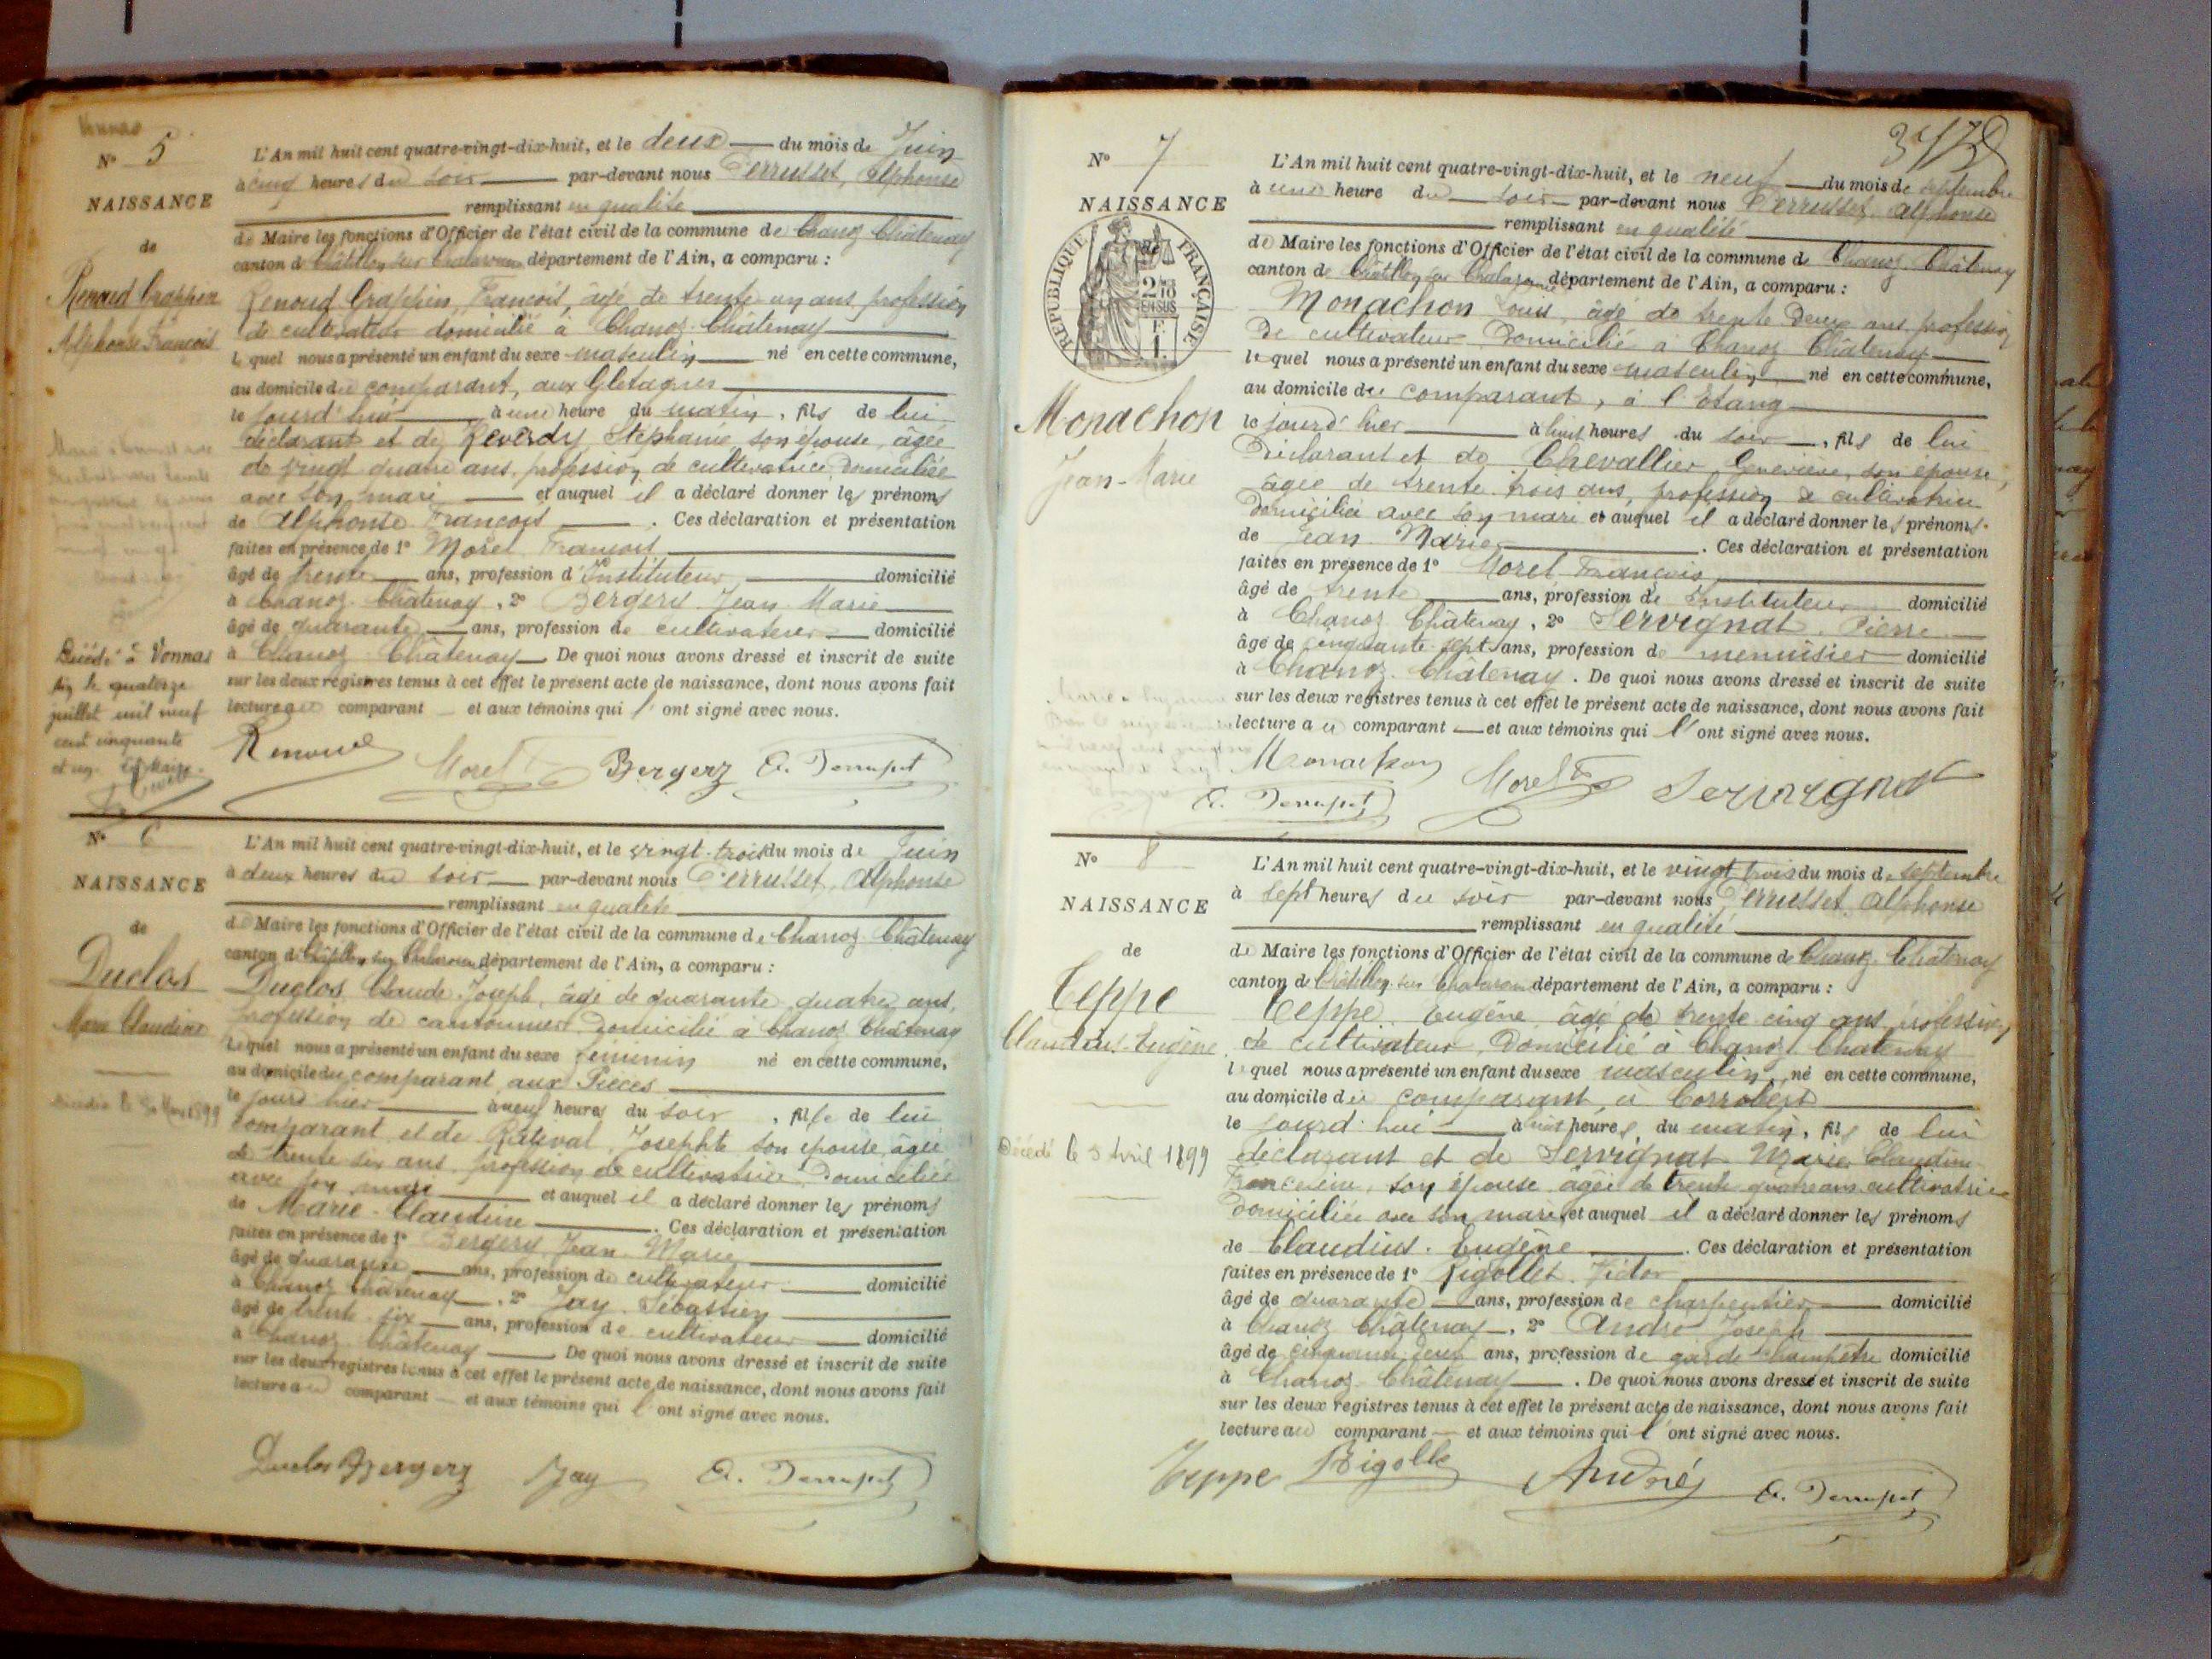 Vonnas
N° 5
NAISSANCE
de
Renoud Grappin
Alphonse François
Décédé à Vonnas
Ain le quatorze
juillet mil neuf
cent cinquante
et un
L'An mil huit cent quatre-vingt-dix-huit, et le deux du mois de Juin
à cinq heures du soir par-devant nous Perrusset, Alphonse
remplissant en qualité
de Maire les fonctions d'Officier de l'état civil de la commune de Chanoz Châtenay
canton de Châtillon sur Chalaronne département de l'Ain, a comparu :
Renoud Grappin, François, âgé de trente un ans profession
de cultivateur domicilié à Chanoz-Châtenay
le quel nous a présenté un enfant du sexe masculin né en cette commune,
au domicile du comparant, aux
le jourd'hui à une heure du matin, fils de lui
déclarant et de Reverdy, Stéphanie son épouse, âgée
de vingt quatre ans, profession de cultivatrice domiciliée
avec son mari et auquel il a déclaré donner les prénoms
de Alphonse François. Ces déclaration et présentation
faites en présence de 1° Morel François
âgé de trente ans, profession d'Instituteur domicilié
à Chanoz-Châtenay, 2° Bergery Jean Marie
âgé de quarante ans, profession de cultivateur domicilié
à Chanoz-Châtenay De quoi nous avons dressé et inscrit de suite
sur les deux registres tenus à cet effet le présent acte de naissance, dont nous avons fait
lecture au comparant et aux témoins qui l'ont signé avec nous.
Renoud Morel F Bergery A. Perrusset
N° 6
NAISSANCE
de
Duclos
Marie Claudine
Décédée le 30 1899
L'An mil huit cent quatre-vingt-dix-huit, et le vingt-trois du mois de Juin
à deux heures du soir par-devant nous Perrusset, Alphonse
remplissant en qualité
de Maire les fonctions d'Officier de l'état civil de la commune de Chanoz Châtenay
canton de Châtillon sur Chalaronne département de l'Ain, a comparu :
Duclos, Claude Joseph, âgé de quarante quatre ans,
profession de cantonnier domicilié à Chanoz Châtenay
Lequel nous a présenté un enfant du sexe féminin né en cette commune,
au domicile du comparant aux Pièces
le jourd'hier à neuf heures du soir, fille de lui
comparant et de Josephte son épouse, âgée
de trente six ans, profession de cultivatrice domiciliée
avec son mari et auquel il a déclaré donner les prénoms
de Marie-Claudine. Ces déclaration et présentation
faites en présence de 1° Bergery Jean Marie
âgé de quarante ans, profession de cultivateur domicilié
à Chanoz Châtenay, 2° Jay Sébastien
âgé de trente six ans, profession de cultivateur domicilié
à Chanoz-Châtenay De quoi nous avons dressé et inscrit de suite
sur les deux registres tenus à cet effet le présent acte de naissance, dont nous avons fait
lecture au comparant et aux témoins qui l'ont signé avec nous.
Duclos Bergery Jay A. Perrusset
N° 7
NAISSANCE
RÉPUBLIQUE FRANÇAISE
Monachon
Jean-Marie
L'An mil huit cent quatre-vingt-dix-huit, et le neuf du mois de septembre
à une heure du soir par-devant nous Perrusset Alphonse
remplissant en qualité
de Maire les fonctions d'Officier de l'état civil de la commune de Chanoz-Châtenay
canton de Châtillon sur Chalaronne département de l'Ain, a comparu :
Monachon Louis, âgé de trente deux ans, profession
de cultivateur Domicilié à Chanoz Châtenay
le quel nous a présenté un enfant du sexe masculin né en cette commune,
au domicile du comparant, à l'Etang
le jourd'hier à huit heures du soir, fils de lui
Déclarant et de Chevallier Geneviève, son épouse,
âgée de trente trois ans, profession de cultivatrice
domiciliée avec son mari et auquel il a déclaré donner les prénoms
de Jean Marie. Ces déclaration et présentation
faites en présence de 1° Morel François
âgé de trente ans, profession de Instituteur domicilié
à Chanoz Châtenay, 2° Servignat Pierre
âgé de cinquante sept ans, profession de menuisier domicilié
à Chanoz-Châtenay. De quoi nous avons dressé et inscrit de suite
sur les deux registres tenus à cet effet le présent acte de naissance, dont nous avons fait
lecture au comparant et aux témoins qui l'ont signé avec nous.
Monachon Morel F Servignat
A. Perrusset
N° 8
NAISSANCE
de
Teppe
Claudius-Eugène
Décédé le 5 Avril 1899
L'An mil huit cent quatre-vingt-dix-huit, et le vingt trois du mois de septembre
à sept heures du soir par-devant nous Perrusset Alphonse
remplissant en qualité
de Maire les fonctions d'Officier de l'état civil de la commune de Chanoz-Châtenay
canton de Châtillon sur Chalaronne département de l'Ain, a comparu :
Teppe Eugène âgé de trente cinq ans profession
de cultivateur, Domicilié à Chanoz Châtenay
lequel nous a présenté un enfant du sexe masculin, né en cette commune,
au domicile du comparant, à Corrobert
le jourd'hui à huit heures du matin, fils de lui
déclarant et de Servignat Marie Claudine
son épouse âgée de trente quatre ans cultivatrice
Domiciliée avec son mari et auquel il a déclaré donner les prénoms
de Claudius-Eugène. Ces déclaration et présentation
faites en présence de 1° Rigollet Victor
âgé de quarante ans, profession de charpentier domicilié
à Chanoz Châtenay, 2° André Joseph
âgé de cinquante deux ans, profession de garde champêtre domicilié
à Chanoz-Châtenay. De quoi nous avons dressé et inscrit de suite
sur les deux registres tenus à cet effet le présent acte de naissance, dont nous avons fait
lecture au comparant et aux témoins qui l'ont signé avec nous.
Teppe Rigollet André A. Perrusset